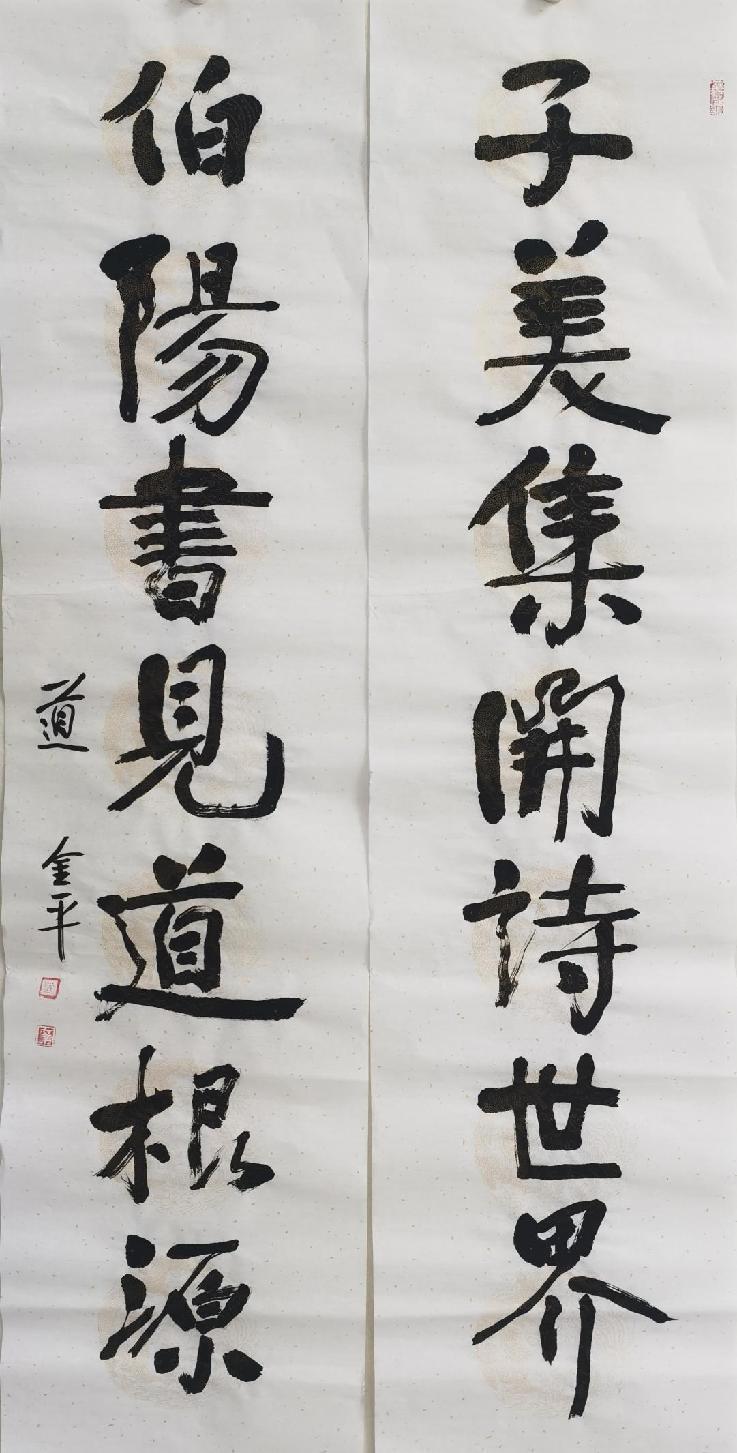 子美集開詩世界
伯陽書見道根源
道 金平